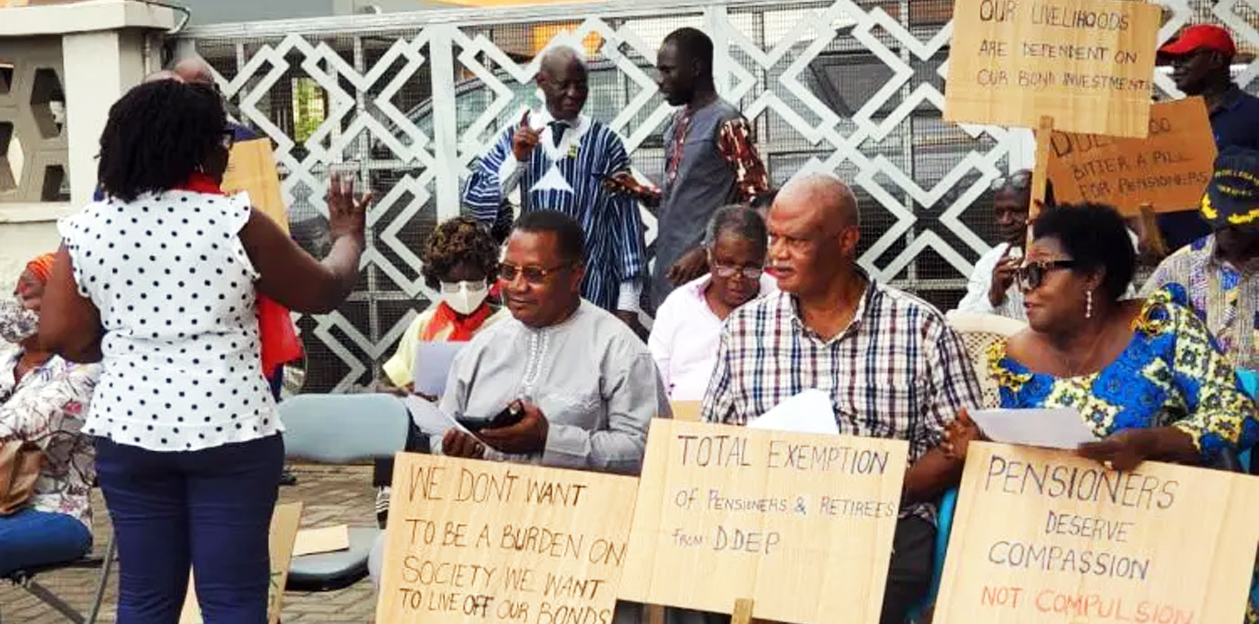 OUR LIVELIHOODS
ARE DEPENDENT ON
OUR BOND INVESTMENT
BITTER A PILL
FOR PENSIONERS
WE DON'T WANT
TO BE A BURDEN ON
SOCIETY, WE WANT
TO LIVE OFF OUR BONDS
TOTAL EXEMPTION
OF PENSIONERS & RETIREES
FROM DDEP
PENSIONERS
DESERVE
COMPASSION
NOT COMPULSION